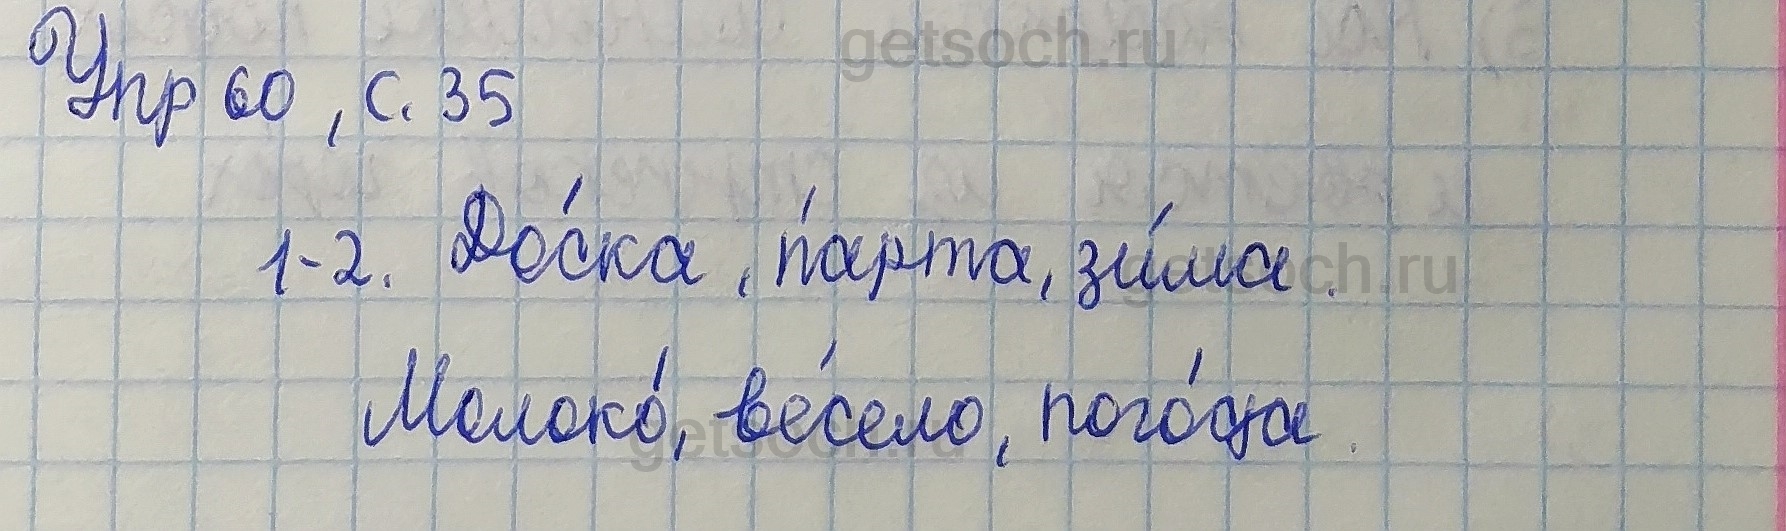 getsoch.ru
Упр 60, с. 35
1-2. До́ска, па́рта, зи́ма.
getsoch.ru
Молоко́, ве́село, пого́да.
getsoch.ru